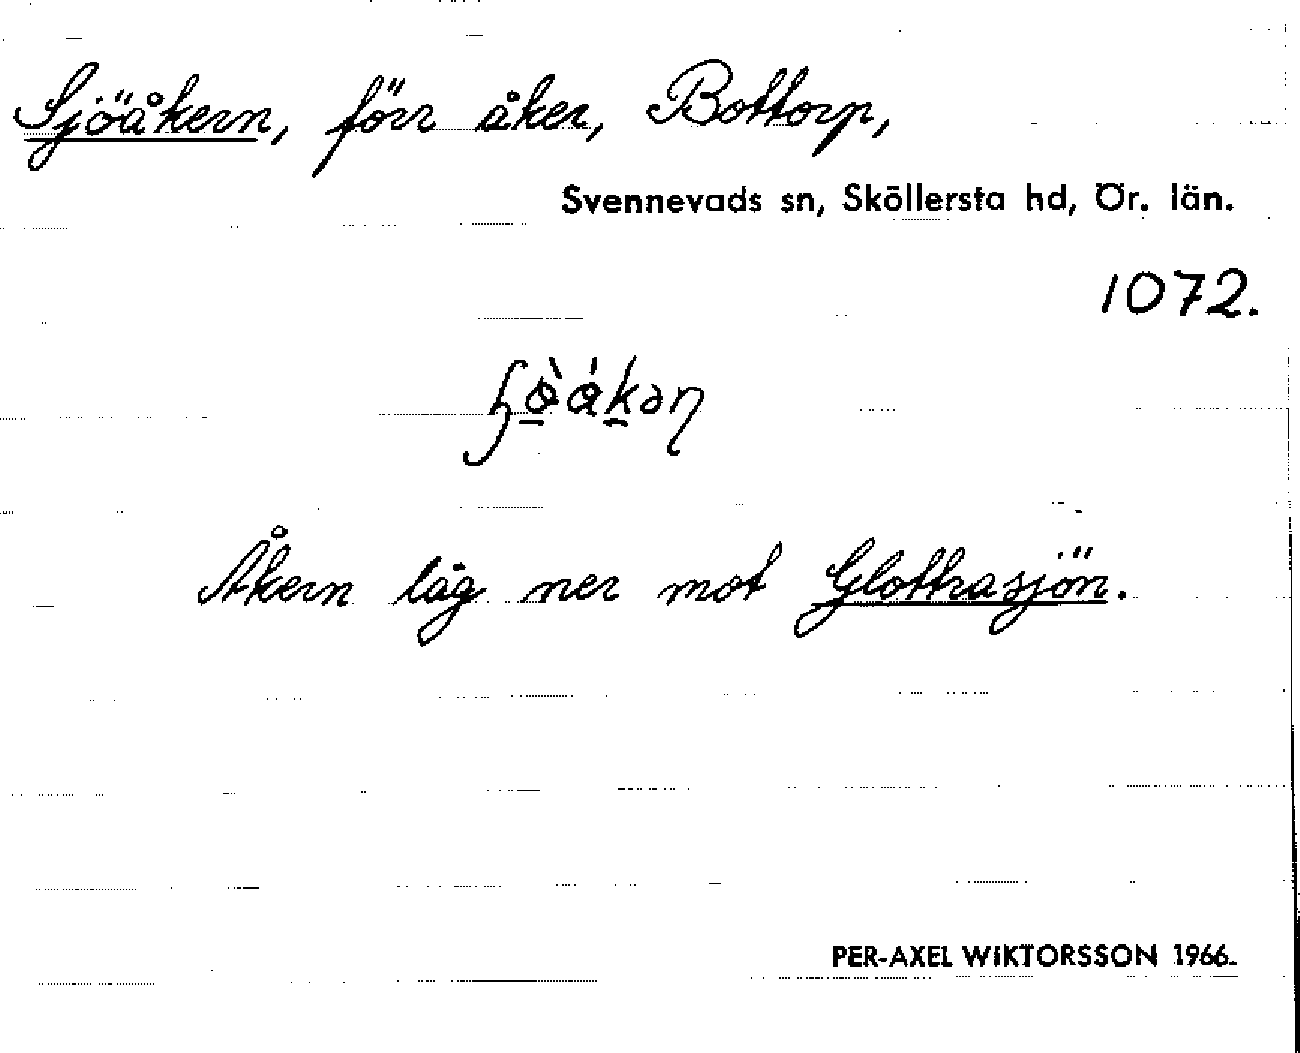 Sjöåkern, förr åker, Bottorp,
Svennevads sn, Sköllersta hd, Ör. län.
1072.
Åkern låg ner mot Glottrasjön.
PER-AXEL WIKTORSSON 1966.